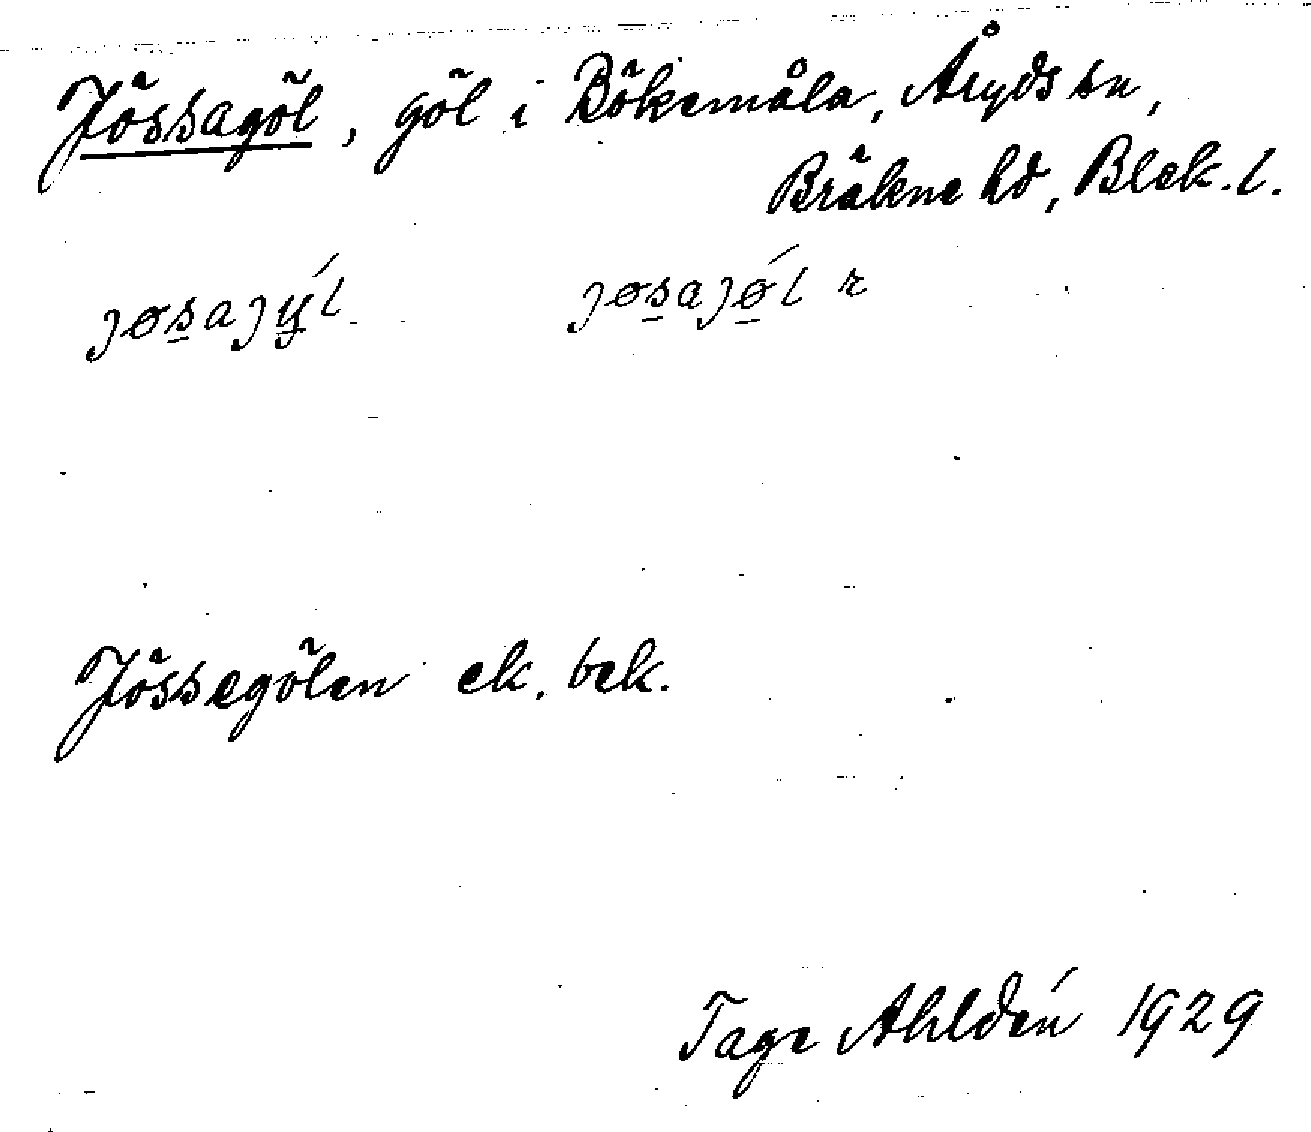 Jössagöl, göl i Bökemåla, Åryds sn,
Bräkne hd, Blek. l.
jøs̲ajý̲l jøs̲ajǿ̲l r
Jössegölen ek. bek.
Tage Ahldén 1929